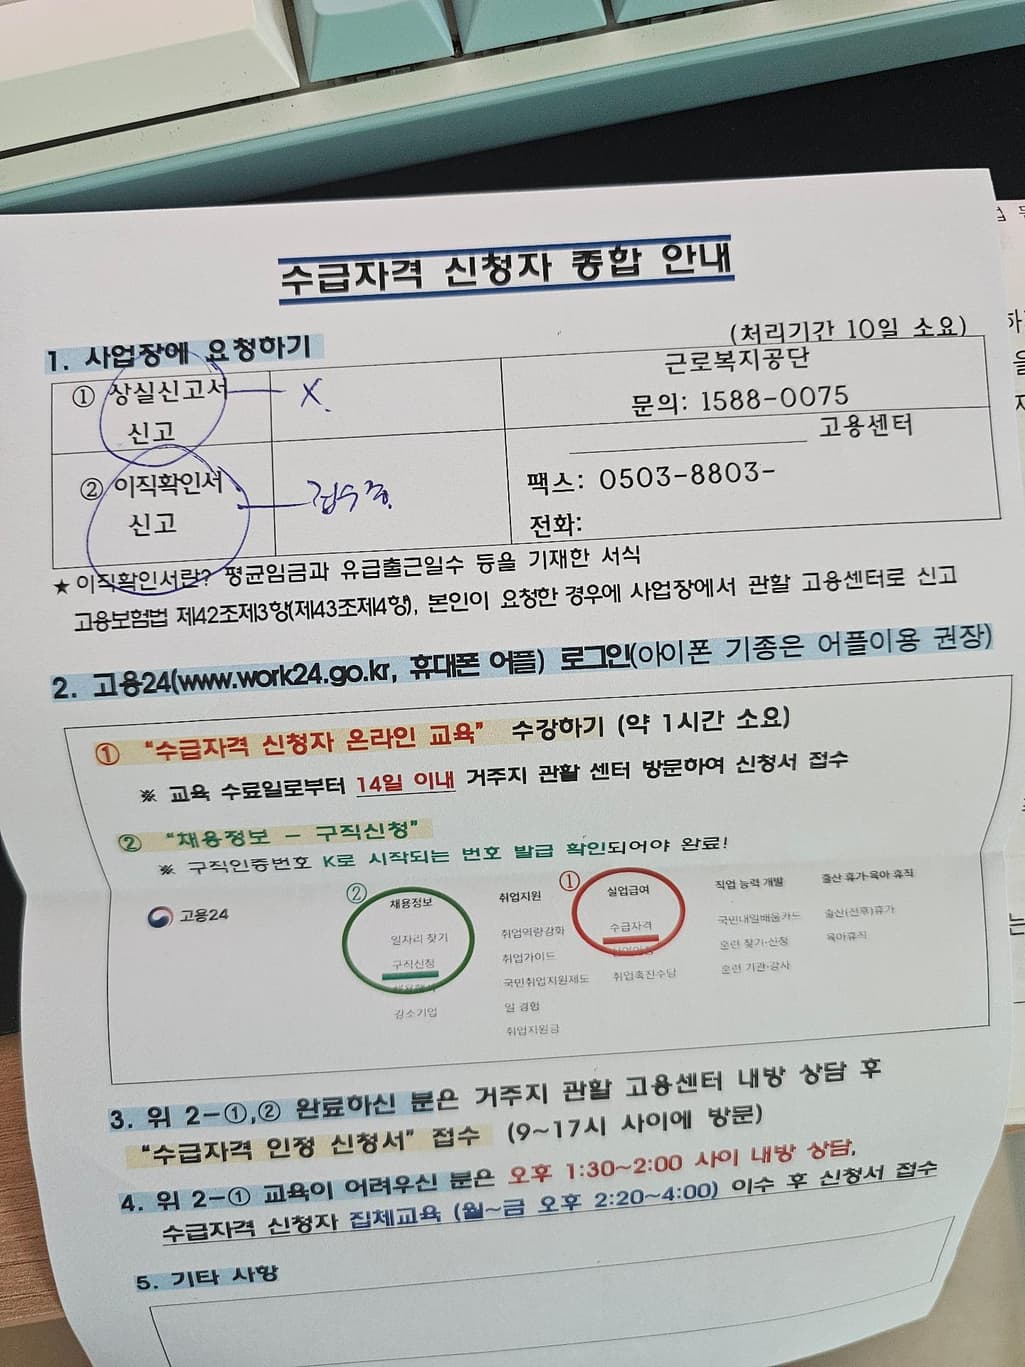 수급자격 신청자 종합 안내
(처리기간 10일 소요)
1. 사업장에 요청하기
① 상실신고서 신고
X.
근로복지공단
문의: 1588-0075
② 이직확인서 신고
접수중.
고용센터
팩스: 0503-8803-
전화:
★ 이직확인서란? 평균임금과 유급출근일수 등을 기재한 서식
고용보험법 제42조제3항(제43조제4항), 본인이 요청한 경우에 사업장에서 관할 고용센터로 신고
2. 고용24(www.work24.go.kr, 휴대폰 어플) 로그인(아이폰 기종은 어플이용 권장)
① "수급자격 신청자 온라인 교육" 수강하기 (약 1시간 소요)
※ 교육 수료일로부터 14일 이내 거주지 관할 센터 방문하여 신청서 접수
② "채용정보 - 구직신청"
※ 구직인증번호 K로 시작되는 번호 발급 확인되어야 완료!
고용24
②
채용정보
일자리 찾기
구직신청
강소기업
취업지원
취업역량강화
취업가이드
국민취업지원제도
일 경험
취업지원금
①
실업급여
수급자격
취업촉진수당
직업 능력 개발
국민내일배움카드
훈련 찾기·신청
훈련 기관·강사
출산 휴가·육아 휴직
출산(전후)휴가
육아휴직
3. 위 2-①,② 완료하신 분은 거주지 관할 고용센터 내방 상담 후
"수급자격 인정 신청서" 접수 (9~17시 사이에 방문)
4. 위 2-① 교육이 어려우신 분은 오후 1:30~2:00 사이 내방 상담,
수급자격 신청자 집체교육 (월~금 오후 2:20~4:00) 이수 후 신청서 접수
5. 기타 사항